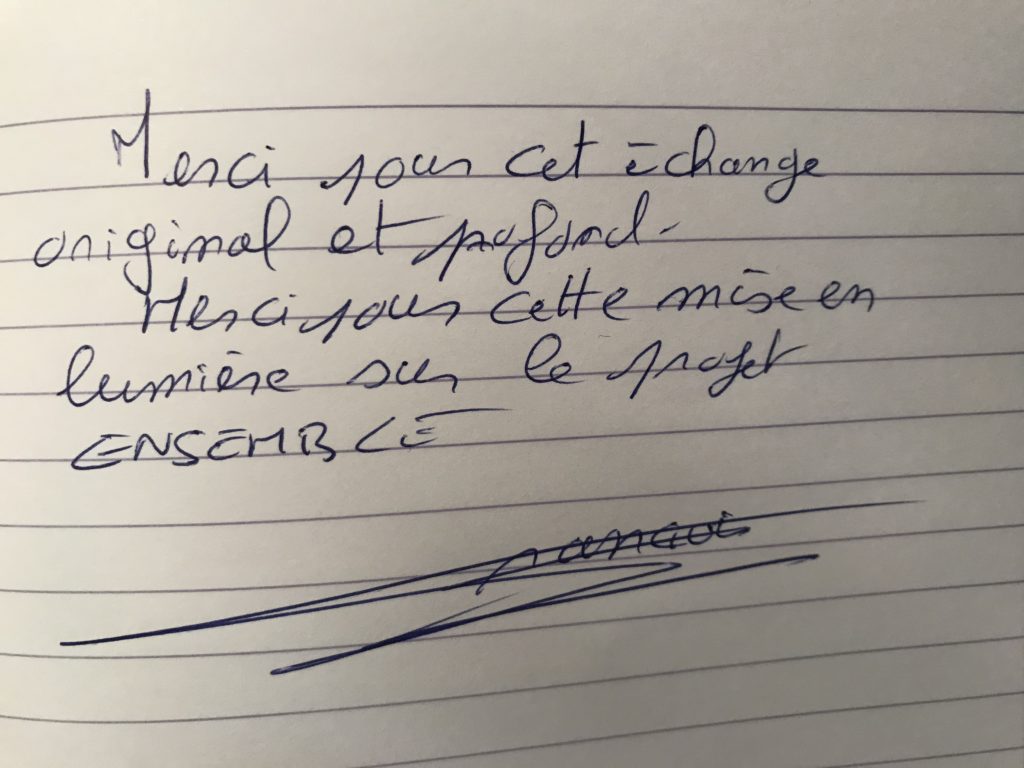 Merci pour cet échange
original et profond.
Merci pour cette mise en
lumière sur le projet
ENSEMBLE